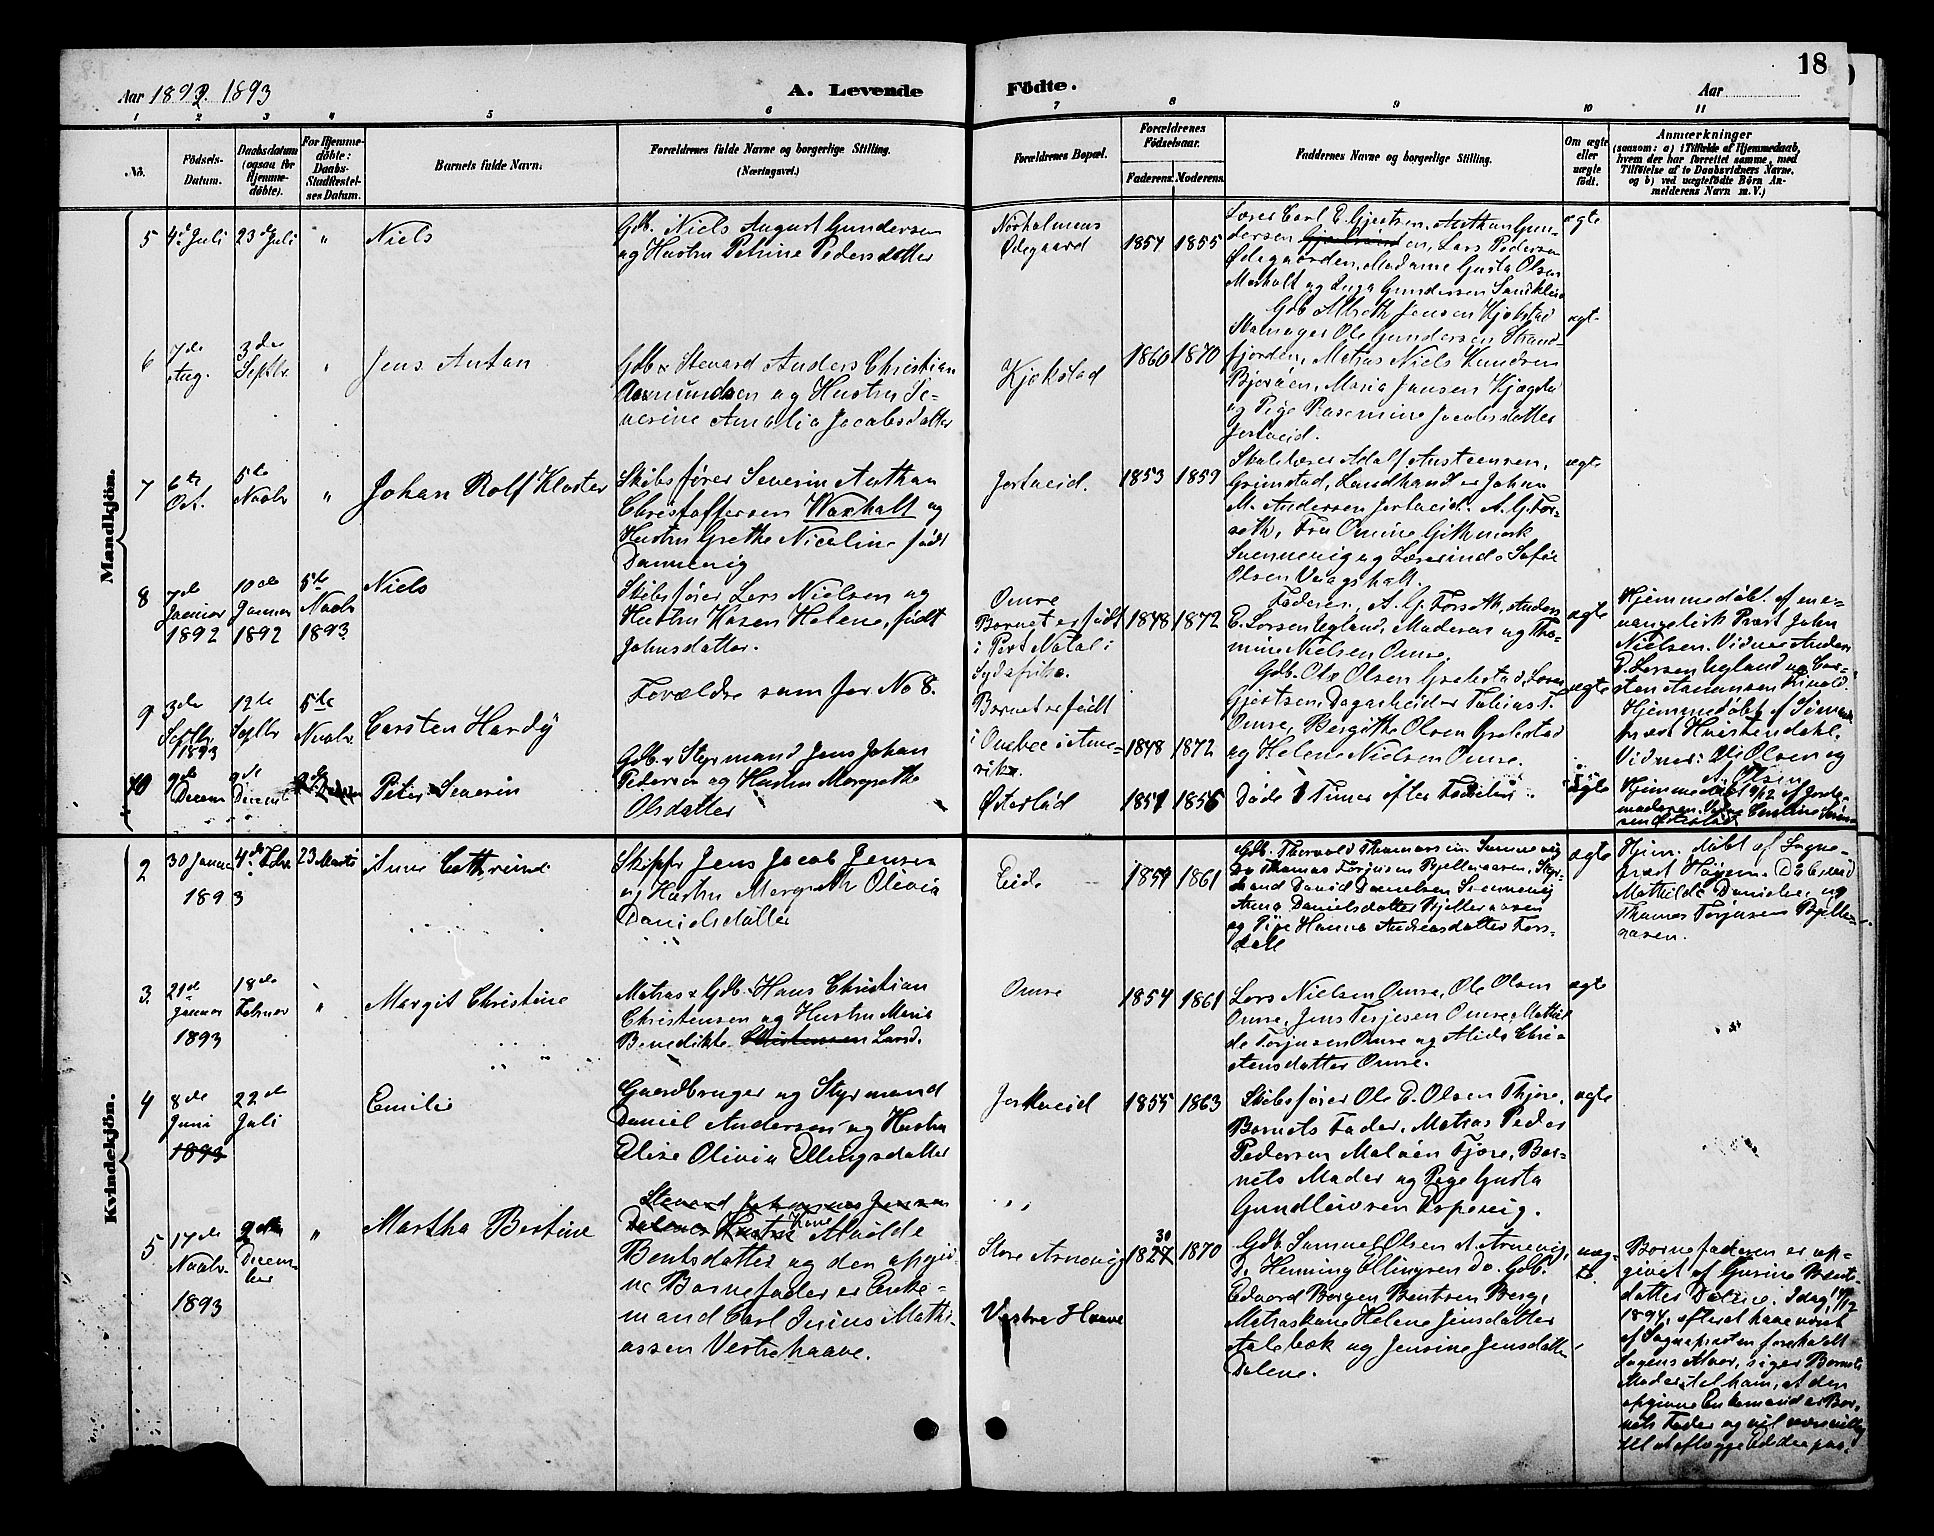 18
Aar 1892. 1893
A. Levende
Födte.
Aar
1 2 3 4 5 6 7 8 9 10 11
No.
Födsels-
Datum.
Daabsdatum
(ogsaa for
Hjemme-
döbte).
For Hjemme-
döbte:
Daabs-
Stadfæstel-
ses Datum.
Barnets fulde Navn.
Forældrenes fulde Navne og borgerlige Stilling.
(Næringsvei.)
Forældrenes Bopæl.
Forældrenes
Födselsaar.
Faderens. Moderens.
Faddernes Navne og borgerlige Stilling.
Om ægte
eller
uægte
født.
Anmærkninger
(saasom: a) i Tilfælde af Hjemmedaab,
hvem der har forrettet samme, med
Tilföielse af to Daabsvidners Navne,
og b) ved uægtefödte Börn An-
melderens Navn m. V.)
Mandkjön.
5
4de Juli
23de Juli
"
Niels
Gdb. Niels August Gundersen
og Hustru Petrine Pedersdatter
Norholmens
Ødegaard
1854
1855
Lærer Carl E. Gjertsen, Anthon Gun-
dersen Lars Pedersen
Ødegaarden, Madame Gusta Olsen
Morholt og Inga Gundersen
ægte
6
7de
Aug.
3die
Septbr.
"
Jens Anton
Gdb. & Steward Anders Christian
Aasmundsen og Hustru Se-
verine Amalia Jacobsdatter
Kjøkstad
1860
1870
Gdb. Jensen Kjøkstad
Ole Gundersen Strand-
fjorden, Matros Niels Knudsen
Bjoraaen, Maria Jansen
og Pige Rasemine Jacobsdatter
Jortveid.
ægte
7
6te
Oct.
5te
Novbr
"
Johan Rolf Kloster
Skibsfører Severin Anthon
Christoffersen Woxholt og
Hustru Grethe Nicoline født
Dannevig
Jortveid.
1853
1859
Skolelærer Adolf Austensen,
Grimstad, Landhandler Johan
M. Andersen Jortveid. A. G. For-
seth, Fru Omine Githmark
Svennevig og Lærerinde Sofie
Olsen Vaagsholt.
ægte
8
7de
Januar
1892
10de
Januar
1892
5te
Novbr
1893
Niels
Skibsfører Lars Nielsen og
Hustru Karen Helene, født
Johnsdatter.
Omre
Barnet er født
i Port Natal i
Sydafrika.
1848
1872
Faderen, A. G. Forseth, Anders
E. Larsen Ugland, Moderen og Tho-
mine Nielsen Omre.
ægte
Hjemmedøbt af en e-
vangelisk Præst John
Nielsen. Vidner Anders
E. Larsen Ugland og Car-
sten
9
3die
Septbr.
1893
12te
Septbr
5te
Novbr.
Carsten Hardy
Forældre som for No 8.
Barnet er født
i Quebec i Ame-
rika.
1848
1872
Gdb. Ole Olsen Grefstad, Søren
Gjertsen, Dagarbeider Tobias T.
Omre, Bergithe Olsen Grefstad
og Helene Nielsen Omre.
ægte
Hjemmedøbt af Sømands-
præst Hvistendahl,
Vidner: Ole Olsen og
A. Olsen
10
9de
Decem
9de
Decemb
Peter Severin
Gdb. & Styrmand Jens Johan
Pedersen og Hustru Margrethe
Olsdatter
Østerstad
1851
1856
Døde 8 Timer efter Fødselen.
ægte
Hjemmedøbt 9/12 af Jorde-
moderen.
Kvindekjön.
2
30 Januar
1893
4de Febr
23 Marts
Anne Cathrine
Skipper Jens Jacob Jensen
og Hustru Margrethe Olivia
Danielsdatter
Eide
1859
1861
Gdb. Thorvald Thomassen Svennevig
Do Thomas Torjusen Bjelleraasen, Styr-
mand David Danielsen Svennevig
Anna Danielsdatter Bjelleraasen
og Pige Hanna Andreasdatter Fors-
dall
ægte
Hjem. døbt af Sogne-
præst Høyem.
Mathilde Danielsen og
Thomas Torjusen Bjeller-
aasen.
3.
21de
Januar
1893
18de
Februar
"
Margit Christine
Matros & Gdb. Hans Christian
Christensen og Hustru Maria
Benedikte Christensen Lard.
Omre
1854
1861
Lars Nielsen Omre, Ole Olsen
Omre, Jens Terjesen Omre, Mathil
de Torjusen Omre og Alida Chri-
stensdatter Omre.
ægte
4
8de
Juni
1893
22de
Juli
Emilie
Gaardbruger og Styrmand
Daniel Andersen og Hustru
Elise Olivia Ellingsdatter
Jortveid
1855
1863
Skibsfører Ole E. Olsen Thjøre,
Barnets Fader, Matros Peder
Pedersen Malaaen Fjøre, Bar-
nets Moder og Pige Gusta
Gundersen Espevig.
ægte
5
17de
Novbr.
1893
Decem-
ber
"
Martha Bertine
Steward Johannes Jensen
Dalene Hustru Alvilde
Bentsdatter og den opgiv-
ne Barnefader er Enke-
mand Carl Julius Mathi-
assen Vestrehaave.
Store Arnevig
Vestre Haave
30
1827
1870
Gdb. Samuel Olsen St. Arnevig,
Do Henning Ellingsen do. Gdb.
Edvard Bergen Bentsen Berg,
Matroskone Helene Jensdatter
Aalebæk og Jensine Jensdatter
Dalene.
uæg-
te
Barnefaderen er op-
givet af Gurine Bents-
datter Dalene. Idag, 14/12
1894, efter at have været
af Sognepræsten foreholdt
Sagens Alvor, siger Barnets
Moder til ham, at den
opgivne Enkemand er Bar-
nets Fader og vil være villig
til at aflægge Ed derpaa.